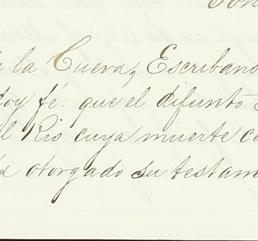 la Cueva, Escribano
doy fé: que el difunto
Rio cuya muerte
otorgado su testam